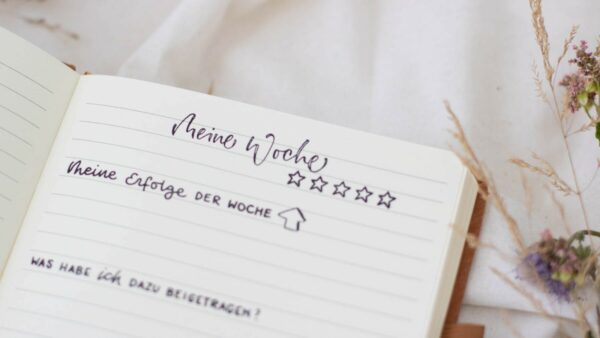 Meine Woche
Meine Erfolge DER WOCHE
WAS HABE ich DAZU BEIGETRAGEN?